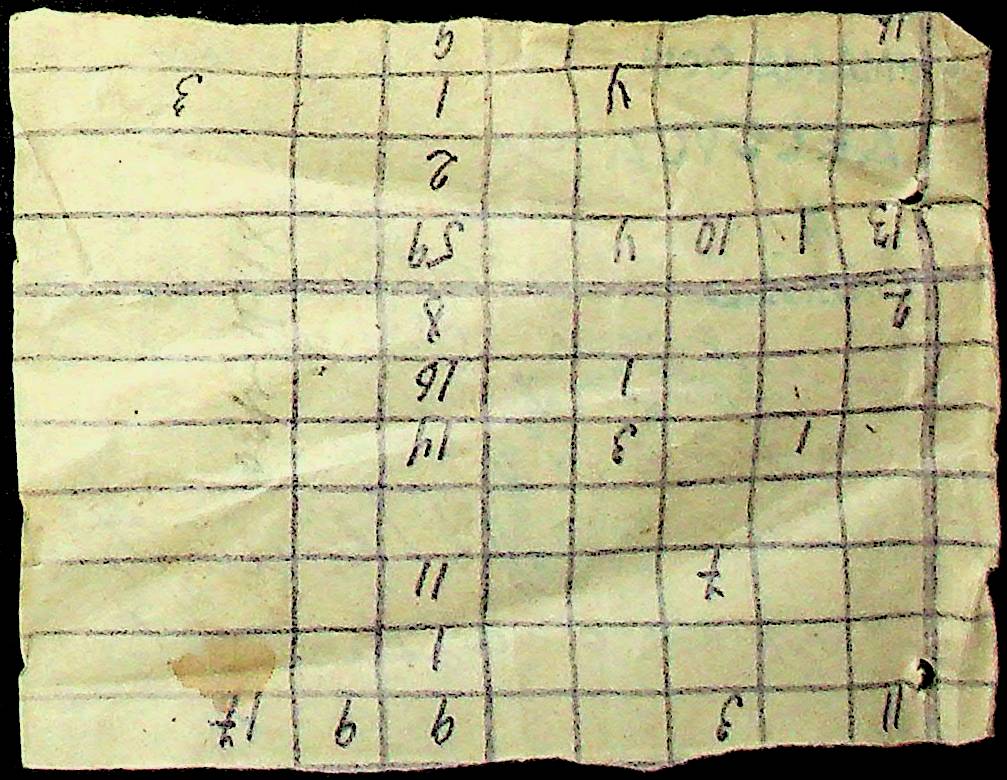 11 3 9 9 17
1
7 11
1 3 14
1 16
2 8
13 1 10 4 59
2
4 1 3